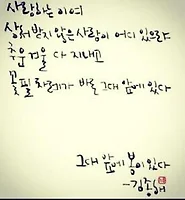 사랑하는 이여
상처 받지 않은 사랑이 어디 있으랴
추운 겨울 다 지내고
꽃필 차례가 바로 그대 앞에 있다
그대 앞에 봄이 있다
-김종해